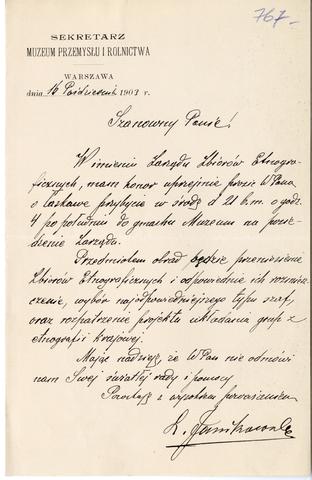 767-
SEKRETARZ
MUZEUM PRZEMYSŁU I ROLNICTWA
WARSZAWA
dnia 16 Październik 1903 r.
Szanowny Panie!
W imieniu Zarządu Zbiorów Etnogra-
ficznych, mam honor uprzejmie prosić WPana
o łaskawe przybycie w środę d 21 b.m. o godz.
4 po południu do gmachu Muzeum na posie-
dzenie Zarządu.
Przedmiotem obrad będzie przeniesienie
Zbiorów Etnograficznych i odpowiednie ich rozmiesz-
czenie, wybór najodpowiedniejszego typu szaf,
oraz rozpatrzenie projektu układania grup z
etnografii krajowej.
Mając nadzieję, że WPan nie odmówi
nam Swej światłej rady i pomocy
Pozostaję z wysokim poważaniem